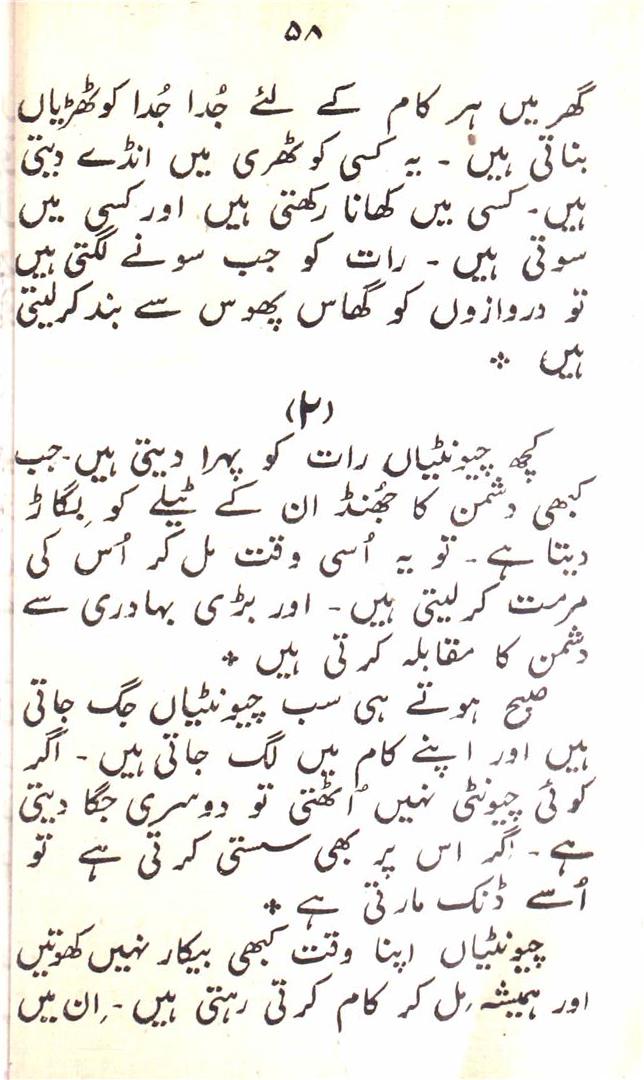 ۵۸
گھر میں ہر کام کے لئے جُدا جُدا کوٹھڑیاں
بناتی ہیں ۔ یہ کسی کوٹھری میں انڈے دیتی
ہیں ۔ کسی میں کھانا رکھتی ہیں اور کسی میں
سوتی ہیں ۔ رات کو جب سونے لگتی ہیں
تو دروازوں کو گھاس پھوس سے بند کر لیتی
ہیں ٭
(۲)
کچھ چیونٹیاں رات کو پہرا دیتی ہیں ۔ جب
کبھی دشمن کا جُھنڈ ان کے ٹیلے کو بِگاڑ
دیتا ہے ۔ تو یہ اُسی وقت مل کر اُس کی
مرمت کر لیتی ہیں ۔ اور بڑی بہادری سے
دشمن کا مقابلہ کرتی ہیں ٭
صبح ہوتے ہی سب چیونٹیاں جگ جاتی
ہیں اور اپنے کام میں لگ جاتی ہیں ۔ اگر
کوئی چیونٹی نہیں اُٹھتی تو دوسری جگا دیتی
ہے ۔ اگر اس پر بھی سستی کرتی ہے تو
اُسے ڈنک مارتی ہے ٭
چیونٹیاں اپنا وقت کبھی بیکار نہیں کھوتیں
اور ہمیشہ مِل کر کام کرتی رہتی ہیں ۔ اِن میں